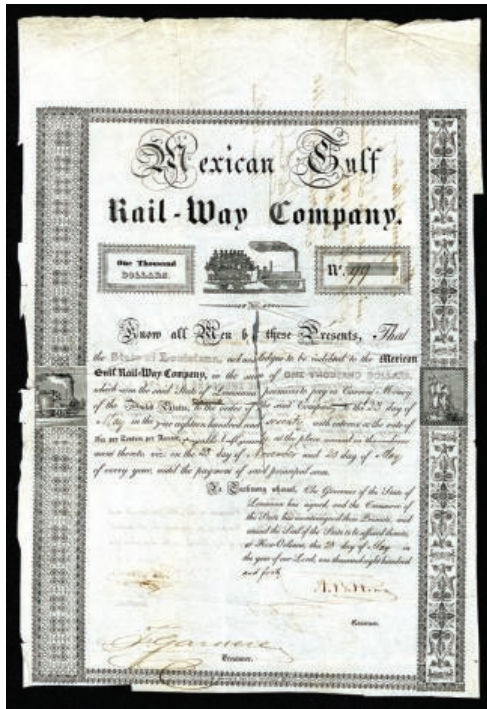 Mexican Gulf
Rail-Way Company.
One Thousand
DOLLARS.
No. 99
Know all Men by these Presents, That
the State of Louisiana, acknowledges to be indebted to the Mexican
Gulf Rail-Way Company, in the sum of ONE THOUSAND DOLLARS,
which sum the said State of Louisiana promises to pay in Current Money
of the United States, to the order of the said Company the 23 day of
May in the year eighteen hundred and seventy with interest at the rate of
Six per Centum per Annum, payable half-yearly, at the place named in the
ment hereto, viz. on the 23 day of November and 23 day of May
of every year, until the payment of said principal sum.
In Testimony whereof, The Governor of the State of
Louisiana has signed, and the Treasurer of
the State has countersigned these Presents, and
caused the Seal of the State to be affixed thereto,
at New-Orleans, this 23 day of May in
the year of our Lord, one thousand eight hundred
and forty
Governor.
Treasurer.